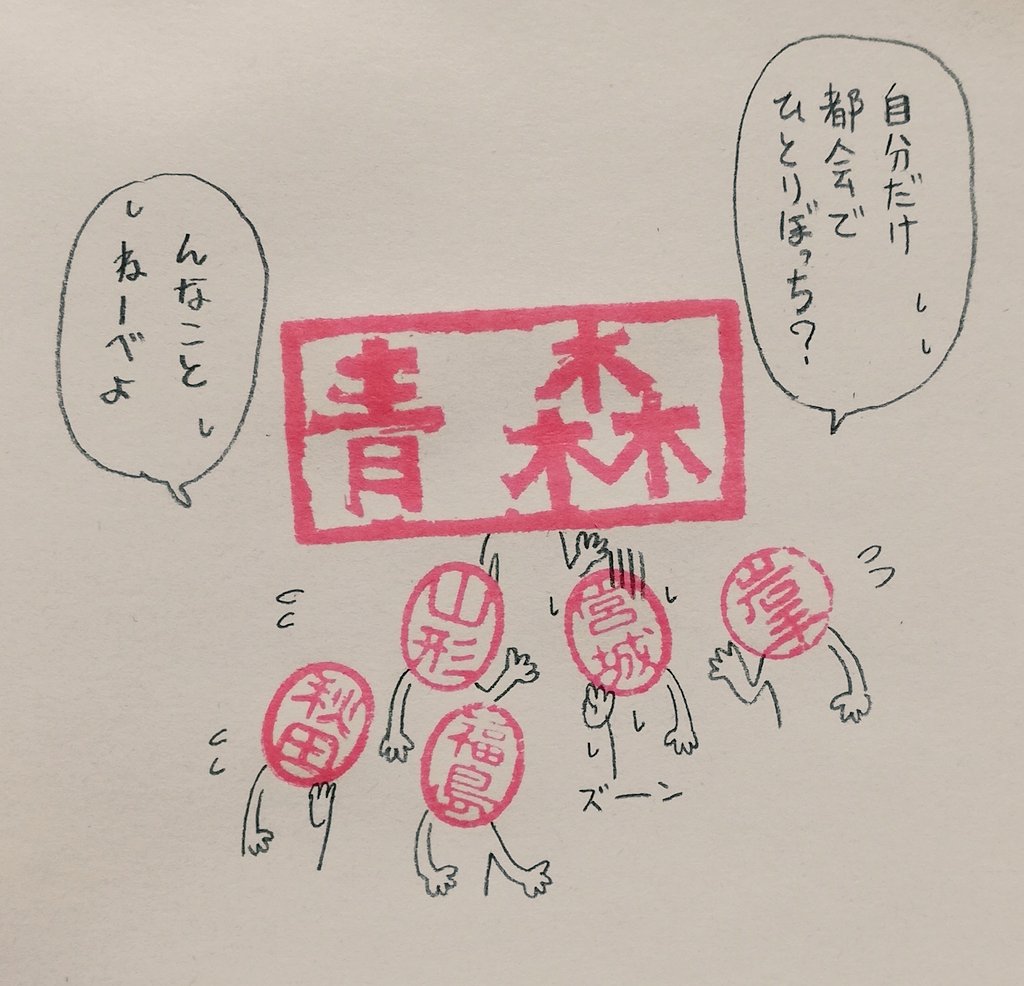 自分だけ
都会で
ひとりぼっち?
んなこと
ねーべよ
青森
山形
宮城
岩手
秋田
福島
ズーン